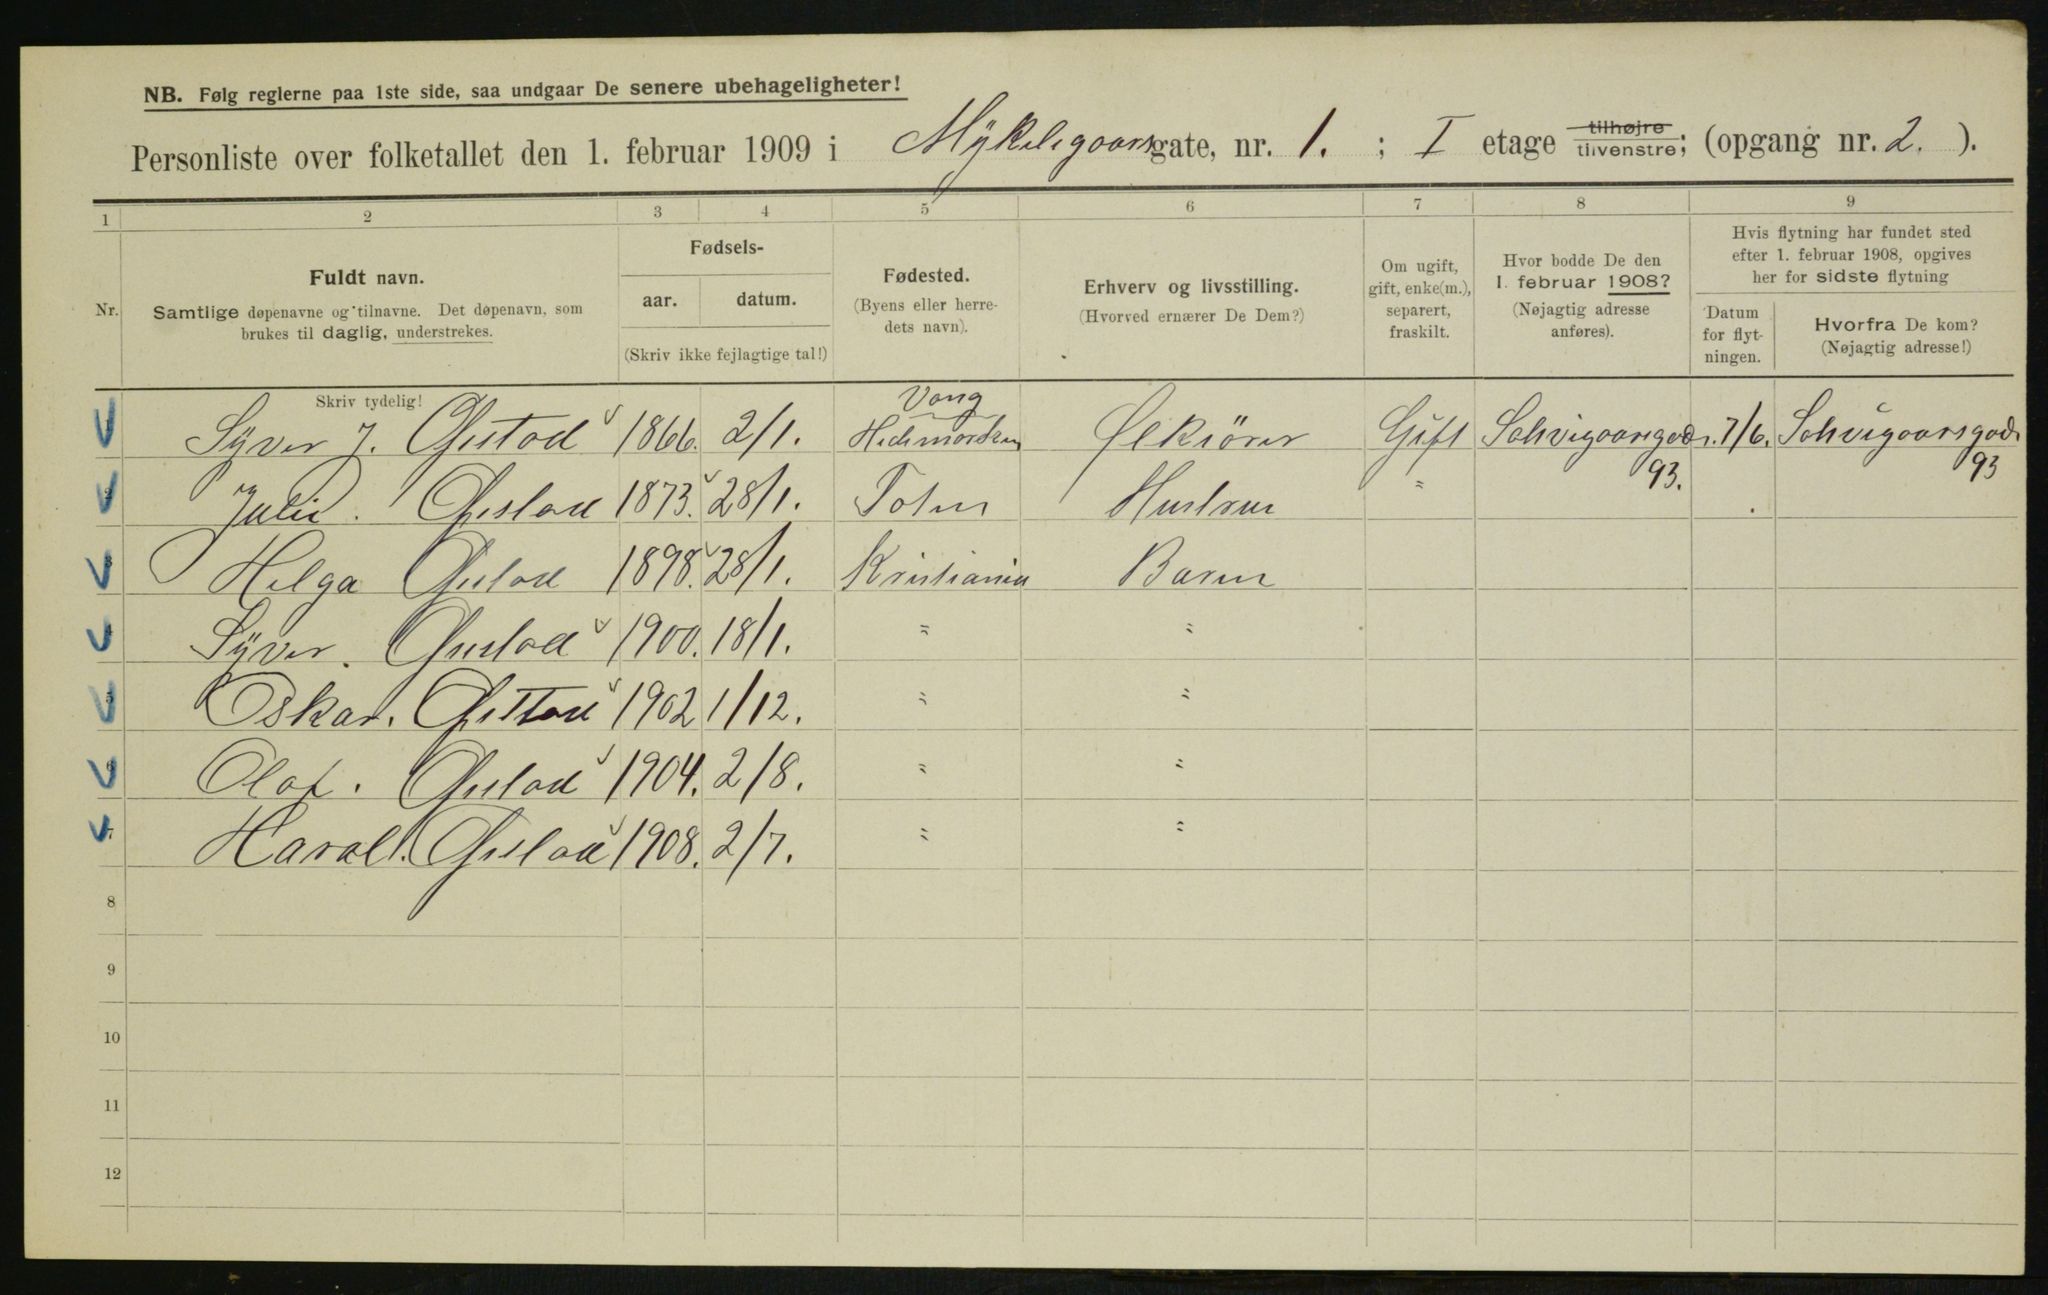 NB. Følg reglerne paa 1ste side, saa undgaar De senere ubehageligheter!
Personliste over folketallet den 1. februar 1909 i Nykelsgaarsgate, nr. 1. ; I etage tilhøjre tilvenstre; (opgang nr. 2. ).
1 2 3 4 5 6 7 8 9
Nr.
Fuldt navn.
Samtlige døpenavne og tilnavne. Det døpenavn, som
brukes til daglig, understrekes.
Fødsels-
aar. datum.
(Skriv ikke fejlagtige tal!)
Fødested.
(Byens eller herre-
dets navn).
Erhverv og livsstilling.
(Hvorved ernærer De Dem?)
Om ugift,
gift, enke(m.),
separert,
fraskilt.
Hvor bodde De den
1. februar 1908?
(Nøjagtig adresse
anføres).
Hvis flytning har fundet sted
efter 1. februar 1908, opgives
her for sidste flytning
Datum
for flyt-
ningen.
Hvorfra De kom?
(Nøjagtig adresse!)
Skriv tydelig!
1 Syver J. 1866. 2/1. Vang Hedemarken Ølkiører Gift Schvigaarsgade 93. 7/6. Schvigaarsgade 93
2 Julie. 1873. 28/1. Toten Hustrue "
3 Helga 1898. 28/1. Kristiania Barn
4 Syver. 1900. 18/1. " "
5 Oskar. 1902 1/12. " "
6 Olaf. 1904. 2/8. " "
7 Haral. 1908. 2/7. " "
8
9
10
11
12